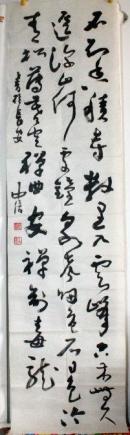 不知香積寺數里入雲峰古木無人
徑深山何處鐘泉聲咽危石日色冷
青松薄暮空潭曲安禪制毒龍
書於長安